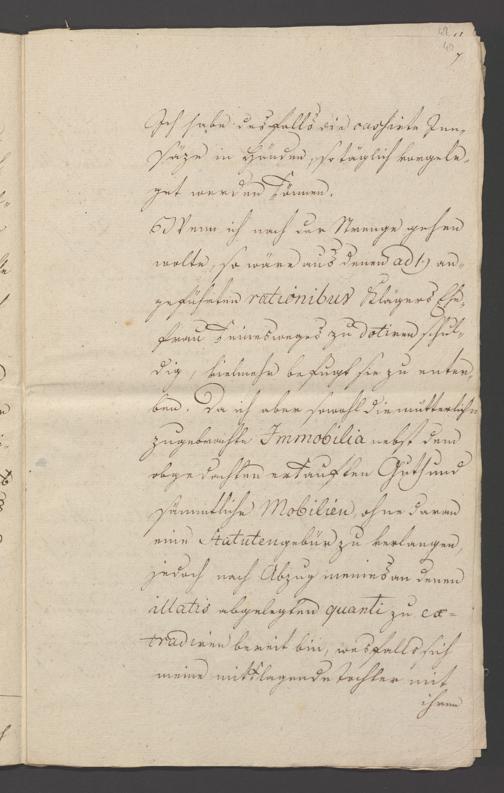 7
Ich habe desfalls die cassirte Inn-
säze in Händen, so täglich vorgele-
get werden können.
6) Wenn ich nach der Strenge gehen
wolte, so wäre aus denen ad 1) an-
geführten rationibus Klägers Ehe-
frau keinesweges zu dotiren schul-
dig, vielmehr befugt sie zu enter-
ben. Da ich aber sowohl die mütterliche
zugebrachte Immobilia nebst dem
obgedachten erkauften Guth und
sämmtliche Mobilien, ohne daran
eine Statutengebür zu verlangen
jedoch nach Abzug meines an denen
illatis abgelegten quanti zu ex-
tradiren bereit bin, wesfalls sich
meine mitklagende Tochter mit
ihrem